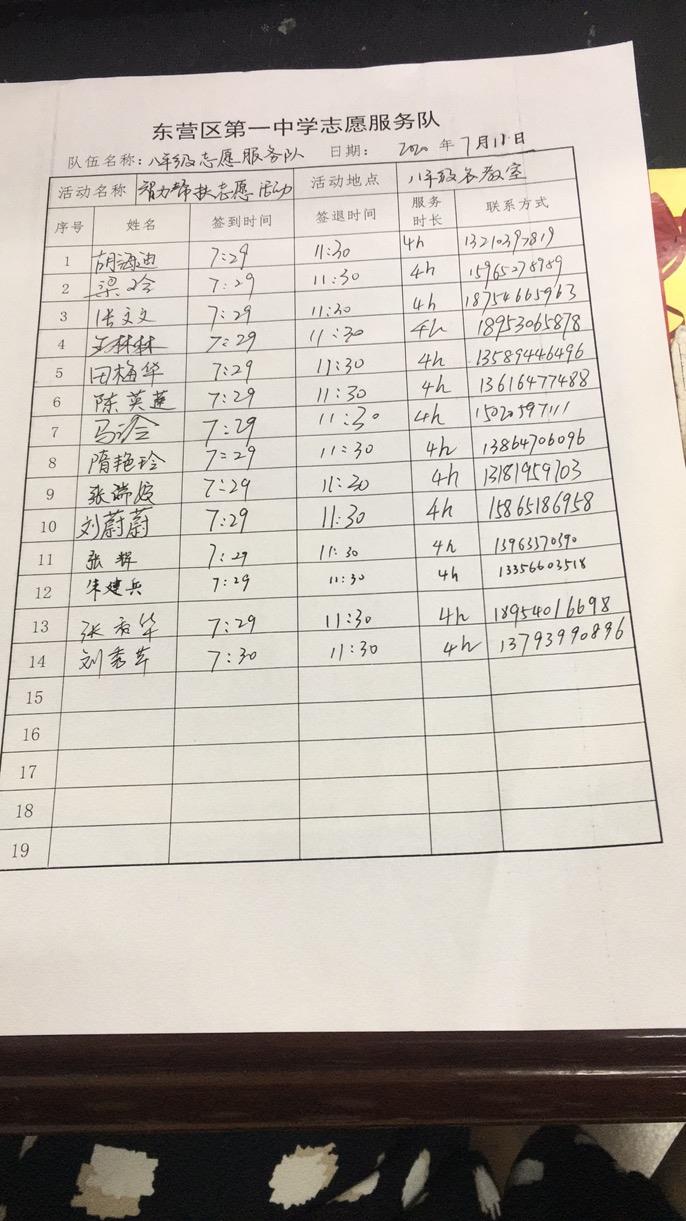 东营区第一中学志愿服务队
队伍名称：八年级志愿服务队 日期： 2020 年 7月11日
活动名称 智力帮扶志愿活动 活动地点 八年级各教室
序号 姓名 签到时间 签退时间 服务时长 联系方式
1 胡海迪 7:29 11:30 4h 13210397819
2 梁 7:29 11:30 4h 15965278989
3 张文文 7:29 11:30 4h 18754665963
4 王林林 7:29 11:30 4h 18953065878
5 田梅华 7:29 11:30 4h 13589446496
6 陈英莲 7:29 11:30 4h 13616477488
7 马 7:29 11:30 4h 15020597111
8 隋艳玲 7:29 11:30 4h 13864706096
9 张瑞姣 7:29 11:30 4h 13181959703
10 刘蔚蔚 7:29 11:30 4h 15865186958
11 张辉 7:29 11:30 4h 13963370590
12 朱建兵 7:29 11:30 4h 13356603518
13 张有华 7:29 11:30 4h 18954016698
14 刘秀芹 7:30 11:30 4h 13793990896
15
16
17
18
19